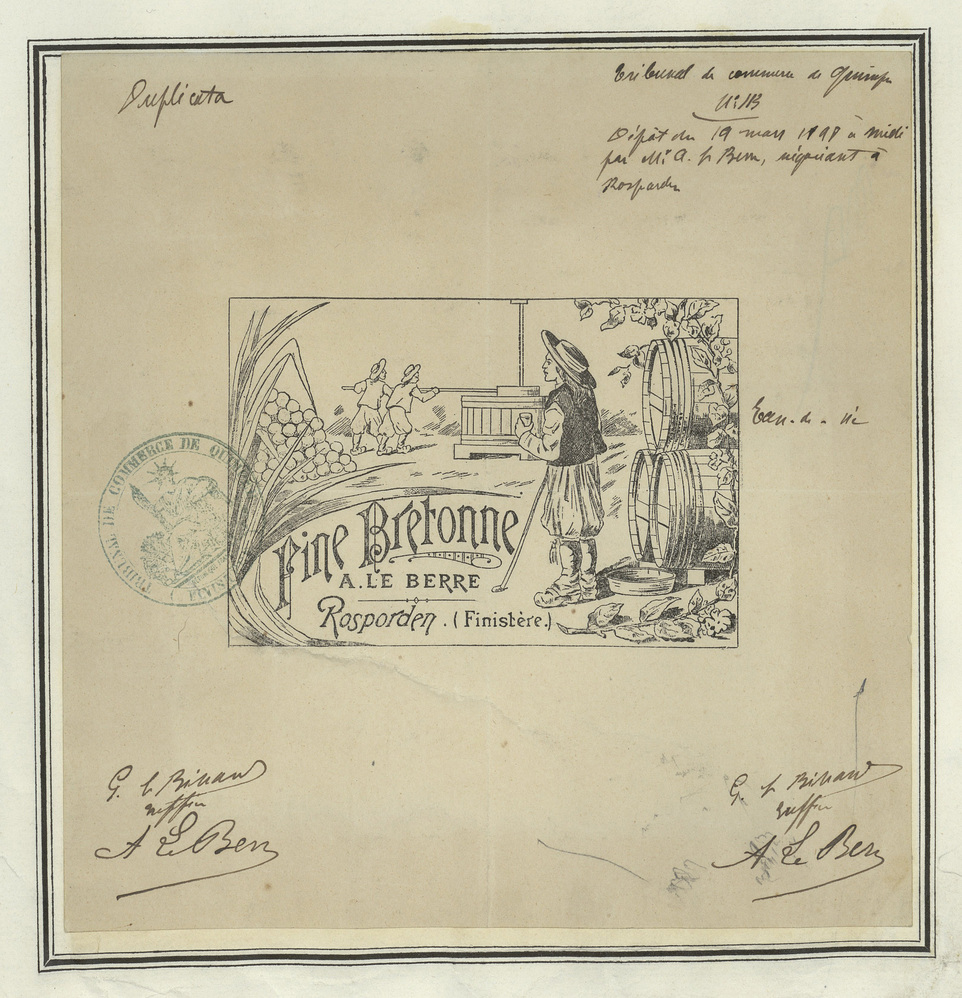 Duplicata
Tribunal de commerce de Quimper
Dépôt du 19 mars 1898 à midi
par Mr A. Le Berre, négociant à
Rosporden
Eau-de-vie
TRIBUNAL DE COMMERCE DE QUIM
( FINIS
Fine Bretonne
A. LE BERRE
Rosporden. (Finistère.)
G. Le
greffier
A Le Berre
G. Le
greffier
A Le Berre